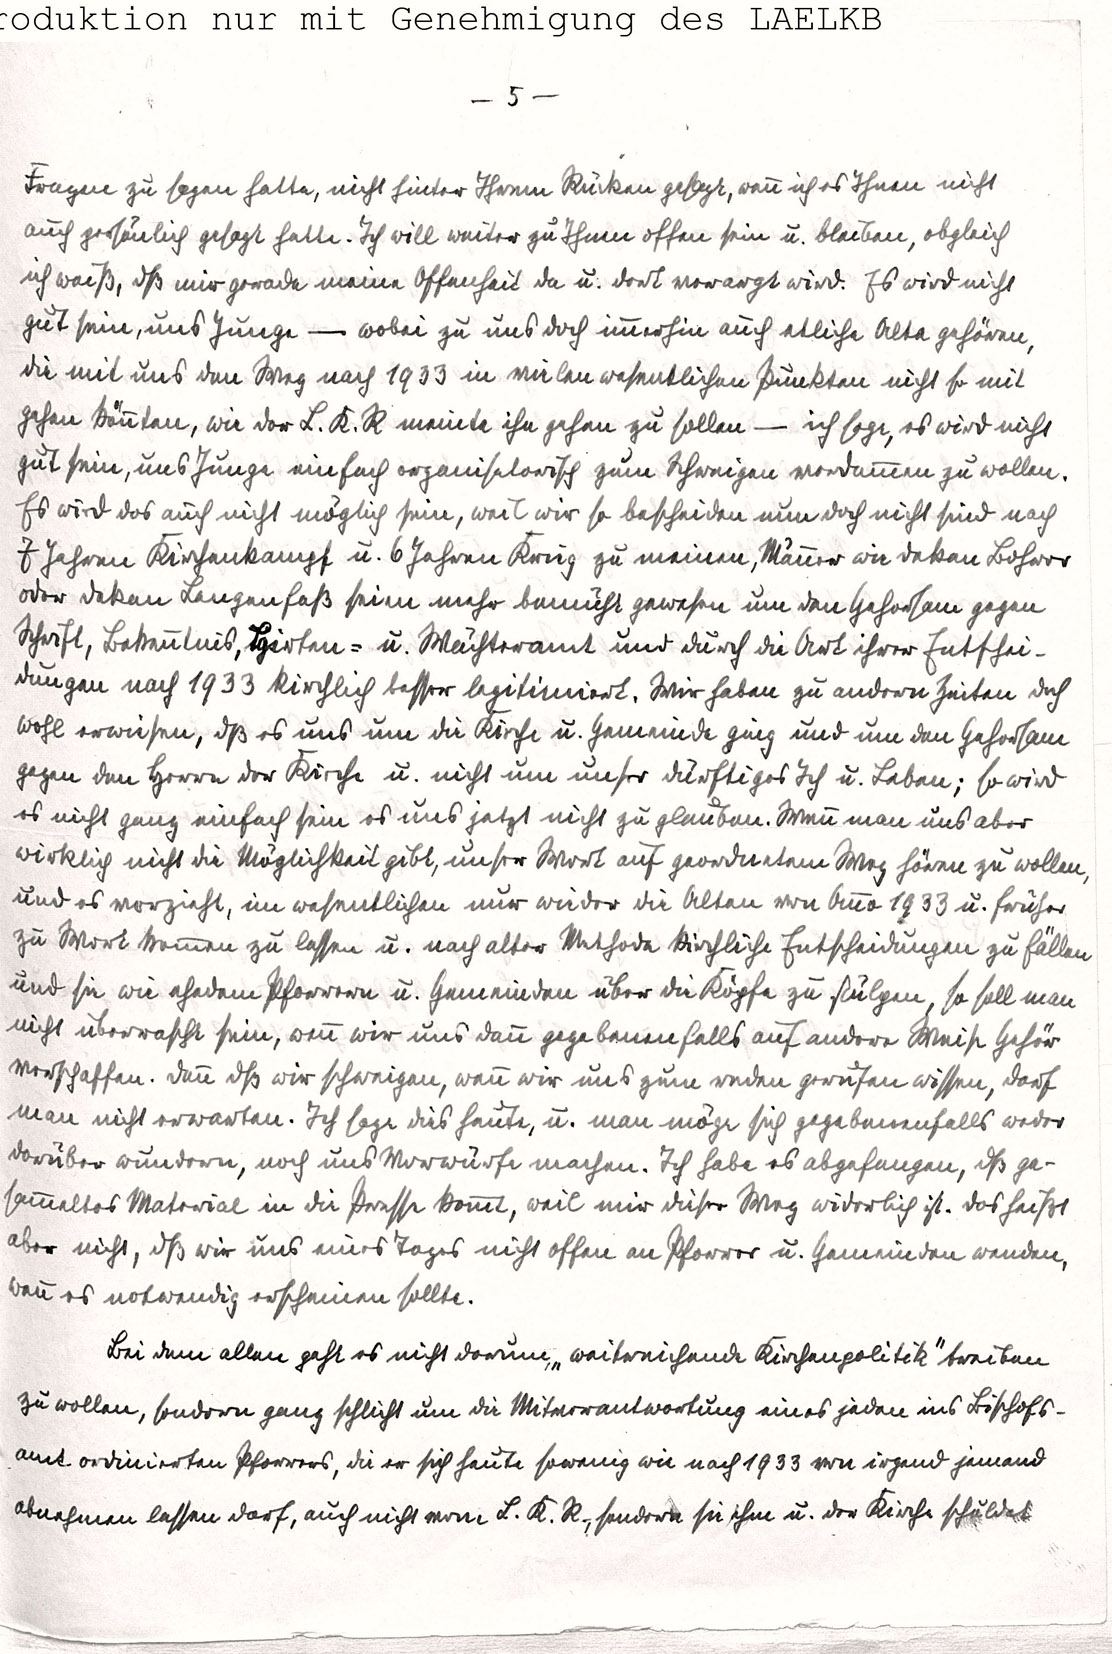 roduktion nur mit Genehmigung des LAELKB
— 5 —
Fragen zu sagen hatte, nicht hinter Ihrem Rücken gesagt, weñ ich es Ihnen nicht
auch persönlich gesagt hatte. Ich will weiter zu Ihnen offen sein u. bleiben, obgleich
ich weiß, dß mir gerade meine Offenheit da u. dort verargt wird. Es wird nicht
gut sein, uns Junge — wobei zu uns doch im̄erhin auch etliche Alte gehören,
die mit uns den Weg nach 1933 in vielen wesentlichen Punkten nicht so mit
gehen koñten, wie der L. K. R meinte ihn gehen zu sollen — ich sage, es wird nicht
gut sein, uns Junge einfach organisatorisch zum Schweigen verdam̄en zu wollen.
Es wird das auch nicht möglich sein, weil wir so bescheiden nun doch nicht sind nach
7 Jahren Kirchenkampf u. 6 Jahren Krieg zu meinen, Mäñer wie Dekan Bohrer
oder Dekan Langenfaß seien mehr bemüht gewesen um den Gehorsam gegen
Schrift, Bekeñtnis, Hirten= u. Wächteramt und durch die Art ihrer Entschei-
dungen nach 1933 kirchlich besser legitimiert. Wir haben zu andern Zeiten doch
wohl erwiesen, dß es uns um die Kirche u. Gemeinde ging und um den Gehorsam
gegen den Herrn der Kirche u. nicht um unser dürftiges Ich u. Leben; so wird
es nicht ganz einfach sein es uns jetzt nicht zu glauben. Weñ man uns aber
wirklich nicht die Möglichkeit gibt, unser Wort auf geordnetem Weg hören zu wollen,
und es vorzieht, im wesentlichen nur wieder die Alten von AñO 1933 u. früher
zu Wort kom̄en zu lassen u. nach alter Methode kirchliche Entscheidungen zu fällen
und sie wie ehedem Pfarrern u. Gemeinden über die Köpfe zu stülpen, so soll man
nicht überrascht sein, weñ wir uns dañ gegebenenfalls auf andere Weise Gehör
verschaffen. Deñ dß wir schweigen, weñ wir uns zum reden gerufen wissen, darf
man nicht erwarten. Ich sage dies heute, u. man möge sich gegebenenfalls weder
darüber wundern, noch uns Vorwürfe machen. Ich habe es abgefangen, dß ge-
sam̄eltes Material in die Presse kom̄t, weil mir dieser Weg widerlich ist. Das heißt
aber nicht, dß wir uns eines Tages nicht offen an Pfarrer u. Gemeinden wenden,
weñ es notwendig erscheinen sollte.
Bei dem allen geht es nicht darum, „weitreichende Kirchenpolitik" treiben
zu wollen, sondern ganz schlicht um die Mitverantwortung eines jeden ins Bischofs-
amt ordinierten Pfarrers, die er sich heute sowenig wie nach 1933 von irgend jemand
abnehmen lassen darf, auch nicht vom L. K. R., sondern sie ihm u. der Kirche schuldet